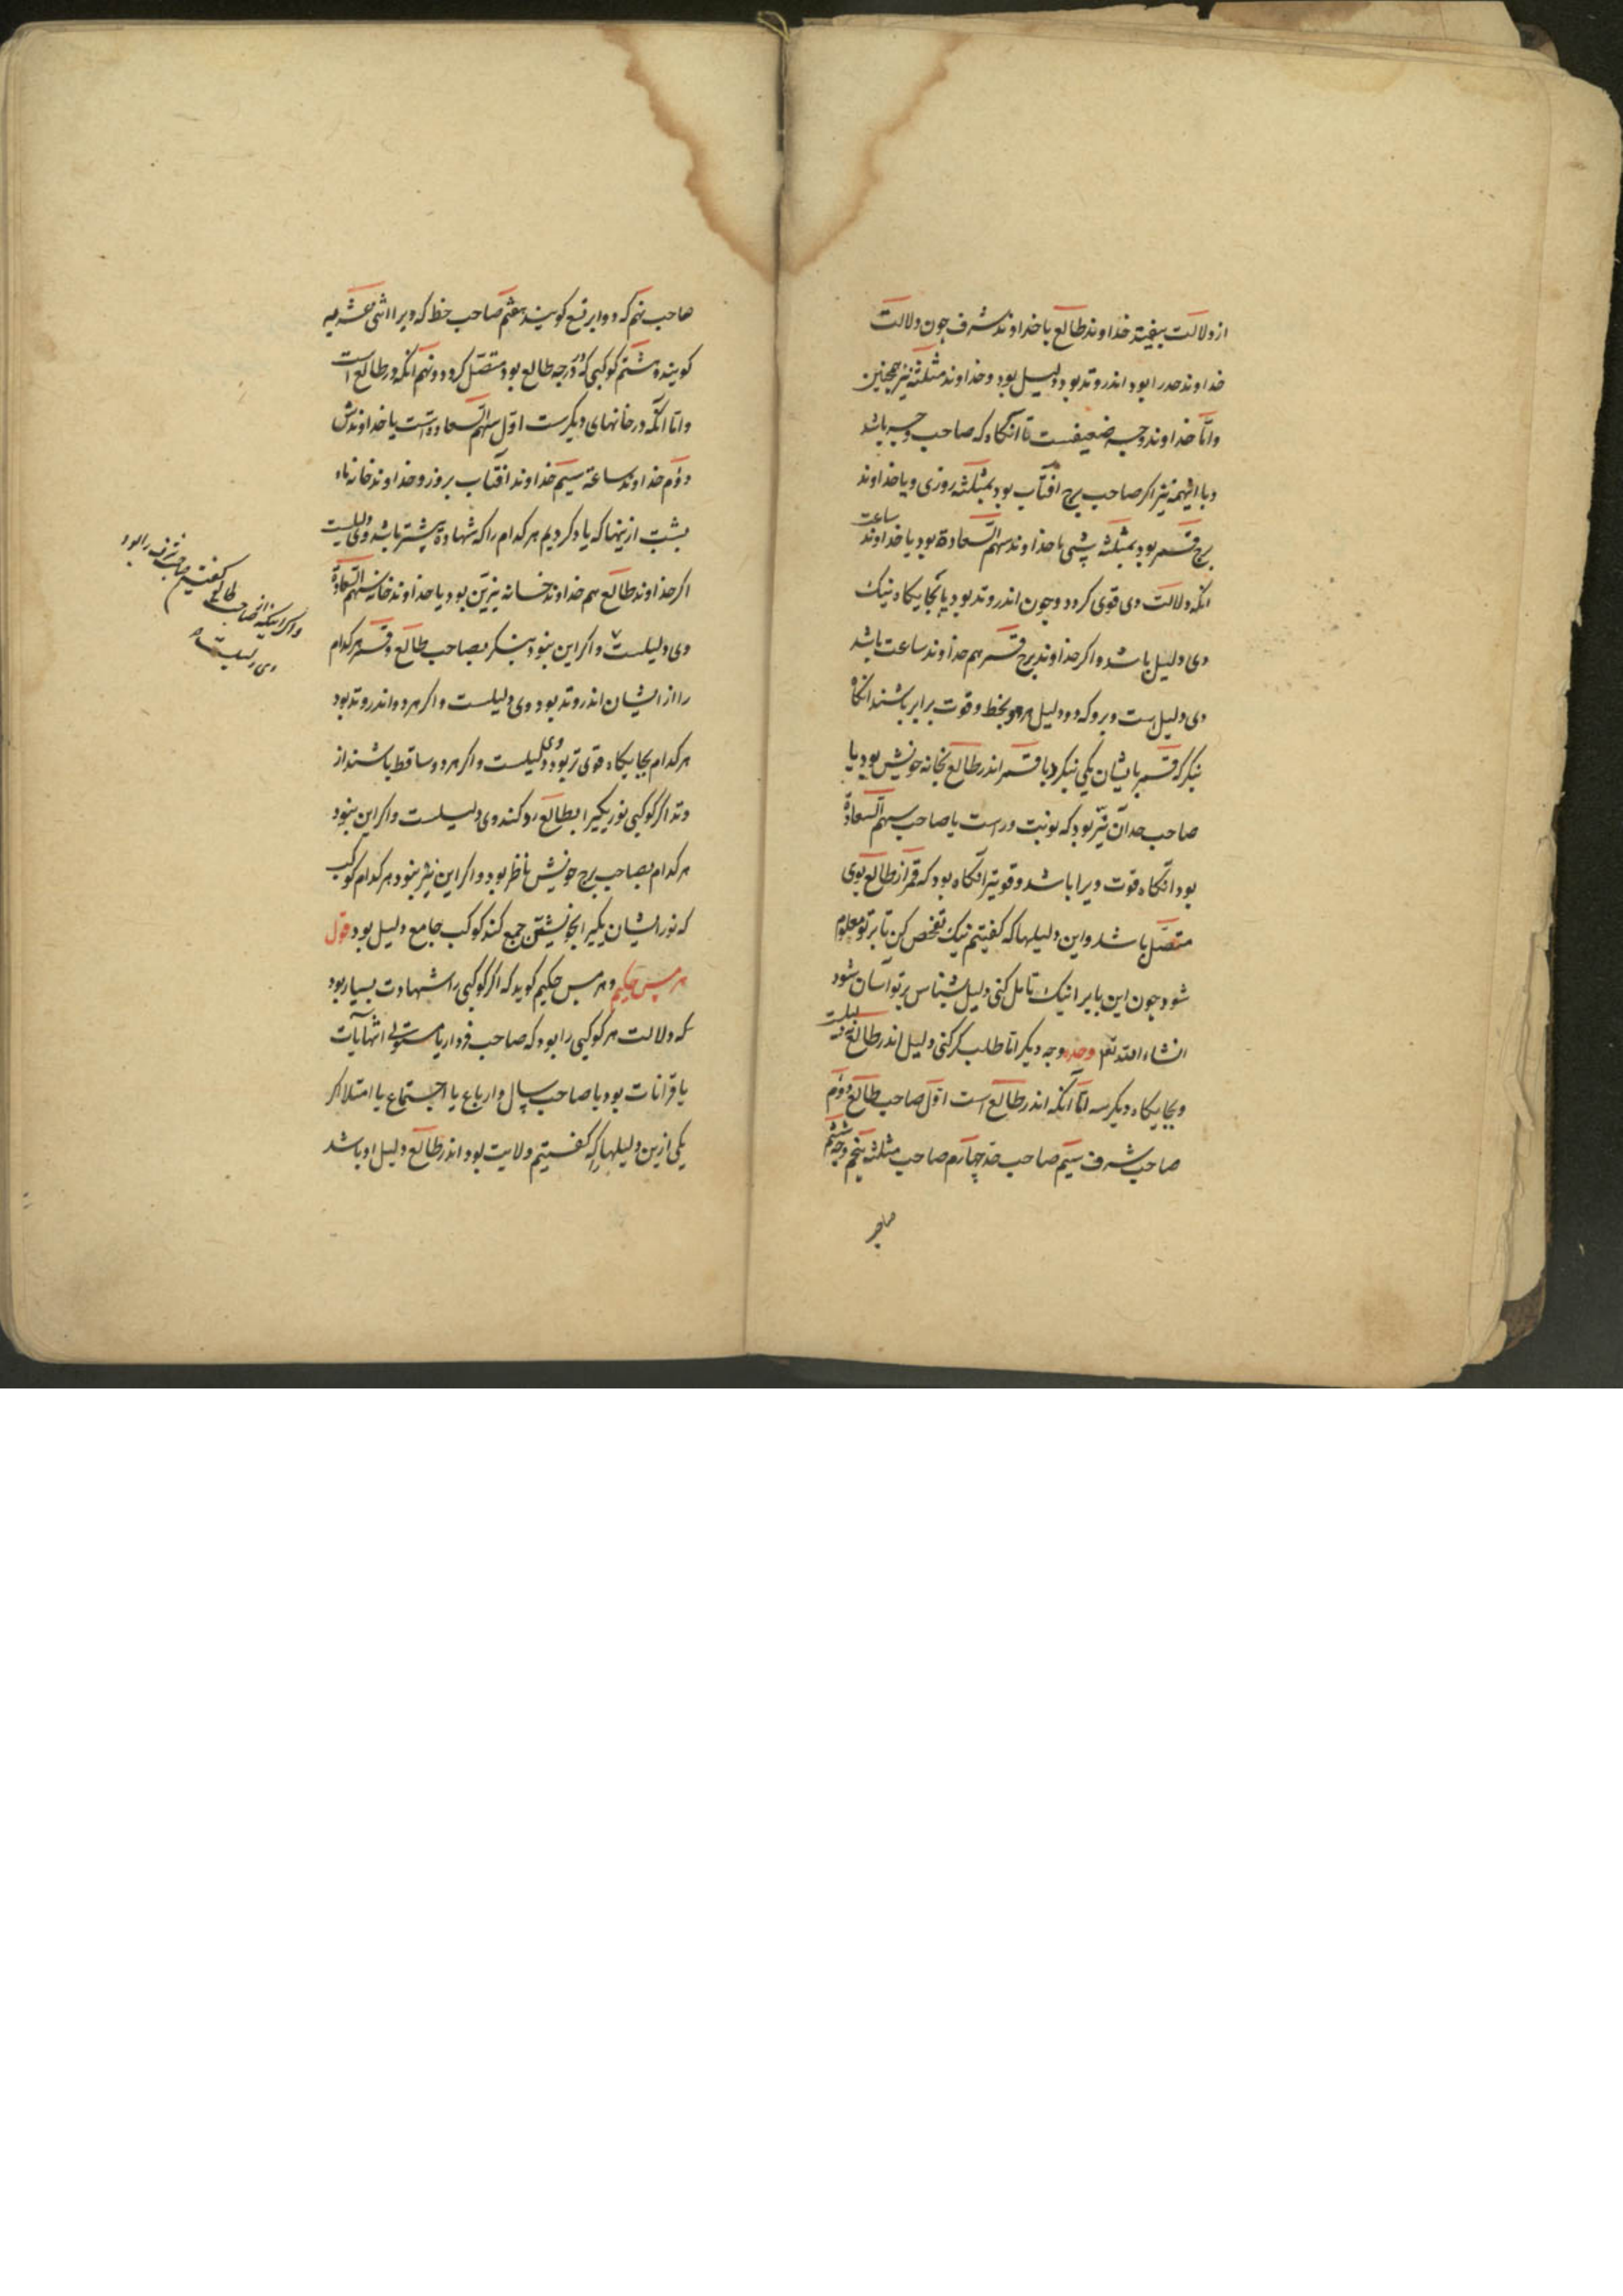 از دلالت بیفتد خداوند طالع یا خداوند شرف چون دلالت
خداوند حد را بود اندر وتد بود دلیل بود و خداوند مثلثه نیز همچنین
و امّا خداوند وجه ضعیفست تا آنگاه که صاحب وجه باشد
و با اینهمه نیز اکر صاحب برج آفتاب بود بمثلثه روزی و یا خداوند
برج قمر بود بمثلثه شبی یا خداوند سهم السّعادة بود یا خداوند ساعت
انکه دلالت وی قوی کردد و چون اندر وتد بود یا بجایکاه نیک
وی دلیل باشد و اکر خداوند برج قمر هم خداوند ساعت باشد
وی دلیل است و هر که دو دلیل هر دو بخط و قوت برابر باشند انکاه
بنکر که قمر بایشان یکی نیکرد یا قمر اندر طالع بخانه خویش بود یا
صاحب حد آن نیّر بود که نوبت وراست یا صاحب سهم السعادة
بود انکاه قوت ویرا باشد و قویتر انکاه بود که قمر از طالع بوی
متصّل باشد و این دلیلها که کفتیم نیک تفحص کن تا بر تو معلوم
شود چون این بابرا نیک تامل کنی دلیل شناس بر تو آسان شود
انشاء الله تعه وجه وجه دیکر اتا طلب کر کنی دلیل اندر طالع
و بجایکاه دیکر سه امّا آنکه اندر طالع است اوّل صاحب طالع دوّم
صاحب شرف سیّم صاحب حد چهارم صاحب مثلثه پنجم وجه ششم
صاحب
صاحب نهم که دوایر تسع کویند هفتم صاحب خط که ویرا اثنی عشریه
کویند هشتم کوکبی که در درجه طالع بود متصّل کردد و نهم آنکه در طالع است
و اتا آنکه در خانهای دیکرست اوّل سهم السّعادة است یا خداوندش
دوّم خداوند ساعة سیّم خداوند آفتاب بروز و خداوند خانه ماه
بشب ازینها که یاد کردیم هر کدام را که شهادة بیشتر باشد وی دلیلست
اکر خداوند طالع هم خداوند خانه نیرین بود یا خداوند خانه سهم السّعادة
وی دلیلست و اکر این نبود بنکر بصاحب طالع و قمر هر کدام
را از ایشان اندر وتد بود وی دلیلست و اکر هر دو اندر وتد بود
هر کدام بجایکاه قوی تر بود وی دلیلست و اکر هر دو ساقط باشند از
وتد اکر کوکبی نور یکیرا بطالع رد کند وی دلیلست و اکر این نبود
هر کدام بصاحب برج خویش ناظر بود و اکر این نیز نبود هر کدام کوکب
که نور ایشان یکیرا بخویشتن جمع کند کوکب جامع دلیل بود قول
هرمس حکیم و هرمس حکیم کوید که اکر کوکبی را شهادت بسیار بود
که دلالت هر کوکبی را بود که صاحب فردار یا مستولی انتهاآت
یا قرانات بود یا صاحب سال و ارباع یا اجتماع یا امتلا اکر
یکی ازین دلیلها را که کفتیم ولایت بود اندر طالع دلیل او باشد
کفتیم صاحب شرف را بود
طالع
وی دلیلست